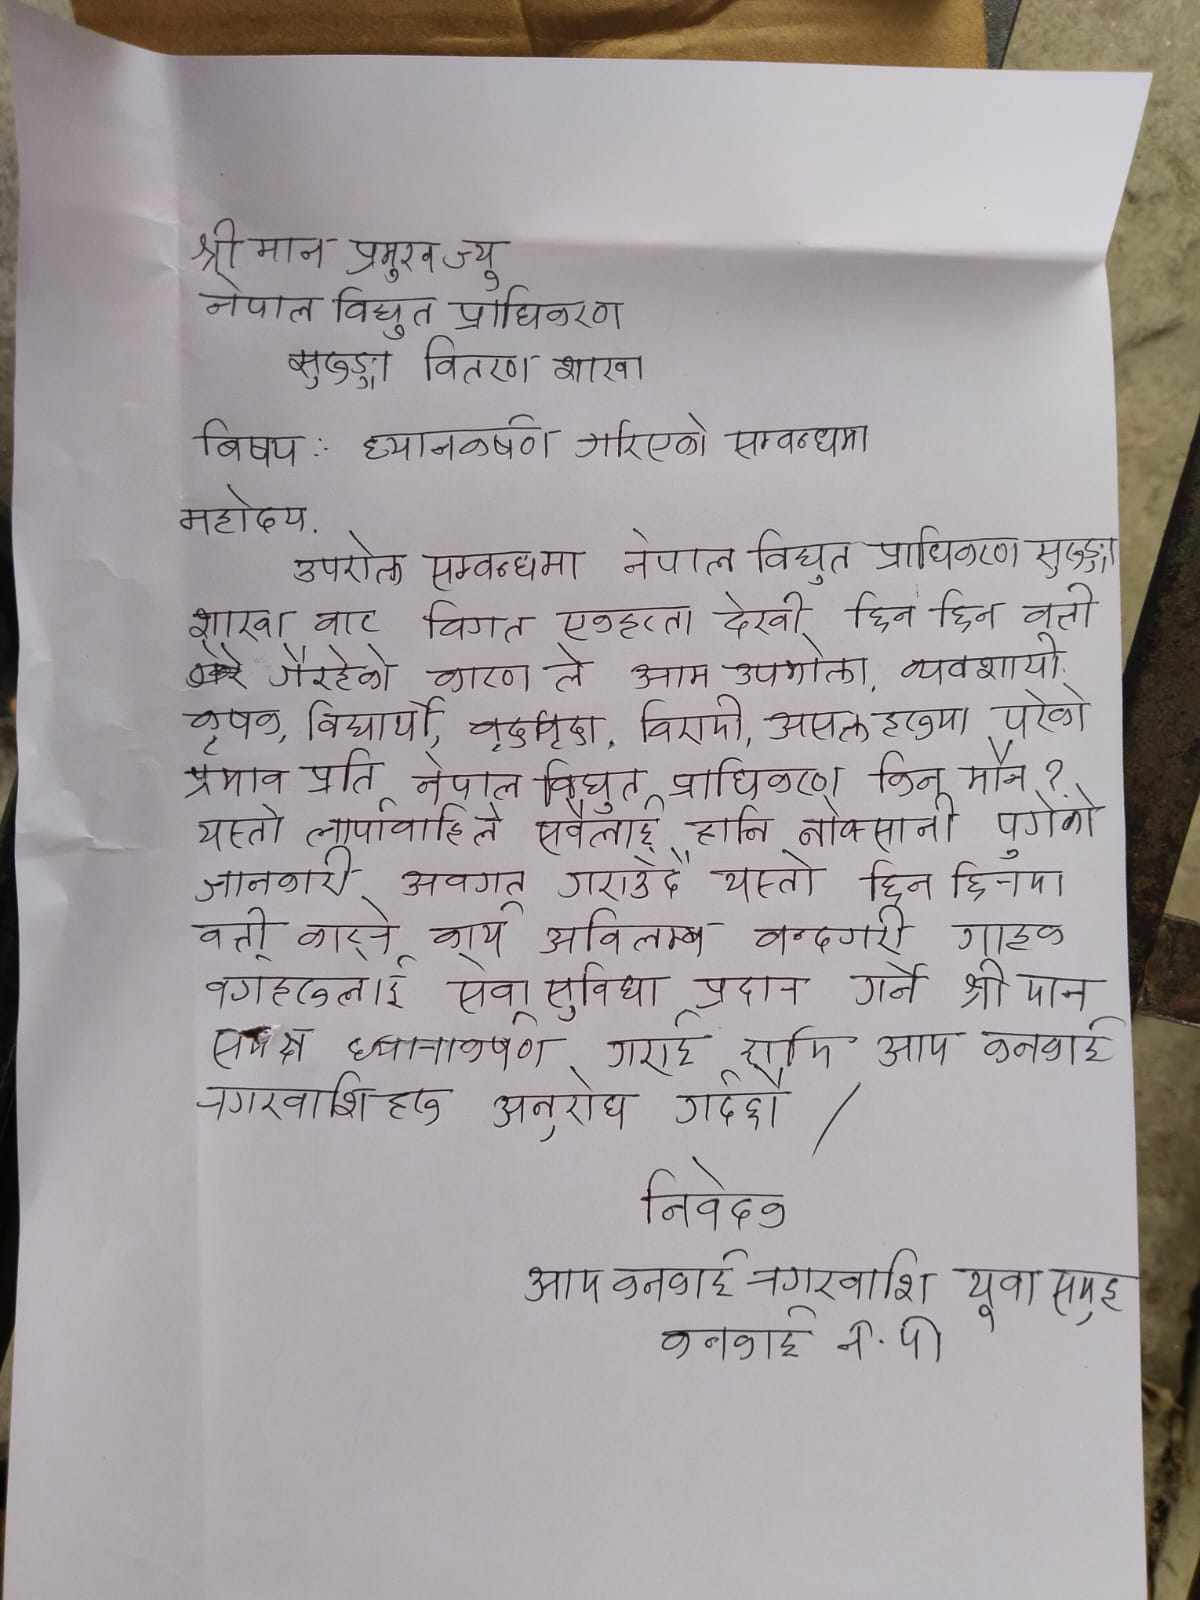 श्रीमान प्रमुख ज्यु
नेपाल विद्युत प्राधिकरण
सुरुङ्गा वितरण शाखा
बिषय :- ध्यानकर्षण गरिएको सम्वन्धमा
महोदय.
उपरोक्त सम्वन्धमा नेपाल विद्युत प्राधिकरण सुरुङ्गा
शाखा वाट विगत एकहप्ता देखी छिन छिन वत्ती
गैरहेको कारण ले आम उपभोक्ता, व्यवशायी
कृषक, विद्यार्थी, वृद्धवृद्धा, विरामी, असक्त हरुमा परेको
प्रभाव प्रति नेपाल विद्युत प्राधिकरण किन मौन ?
यस्तो लार्पावाहिले सवैलाई हानि नोक्सानी पुगेको
जानकारी अवगत गराउदै यस्तो छिन छिनमा
वत्ती काट्ने कार्य अविलम्ब वन्दगरी ग्राहक
वर्गहरुलाई सेवा सुविधा प्रदान गर्न श्रीमान
समक्ष ध्यानाकर्षण गराई हामि आम कनकाई
नगरवाशि हरु अनुरोध गर्दछौ /
निवेदक
आम कनकाई नगरवाशि यूवा समुह
कनकाई न. पा